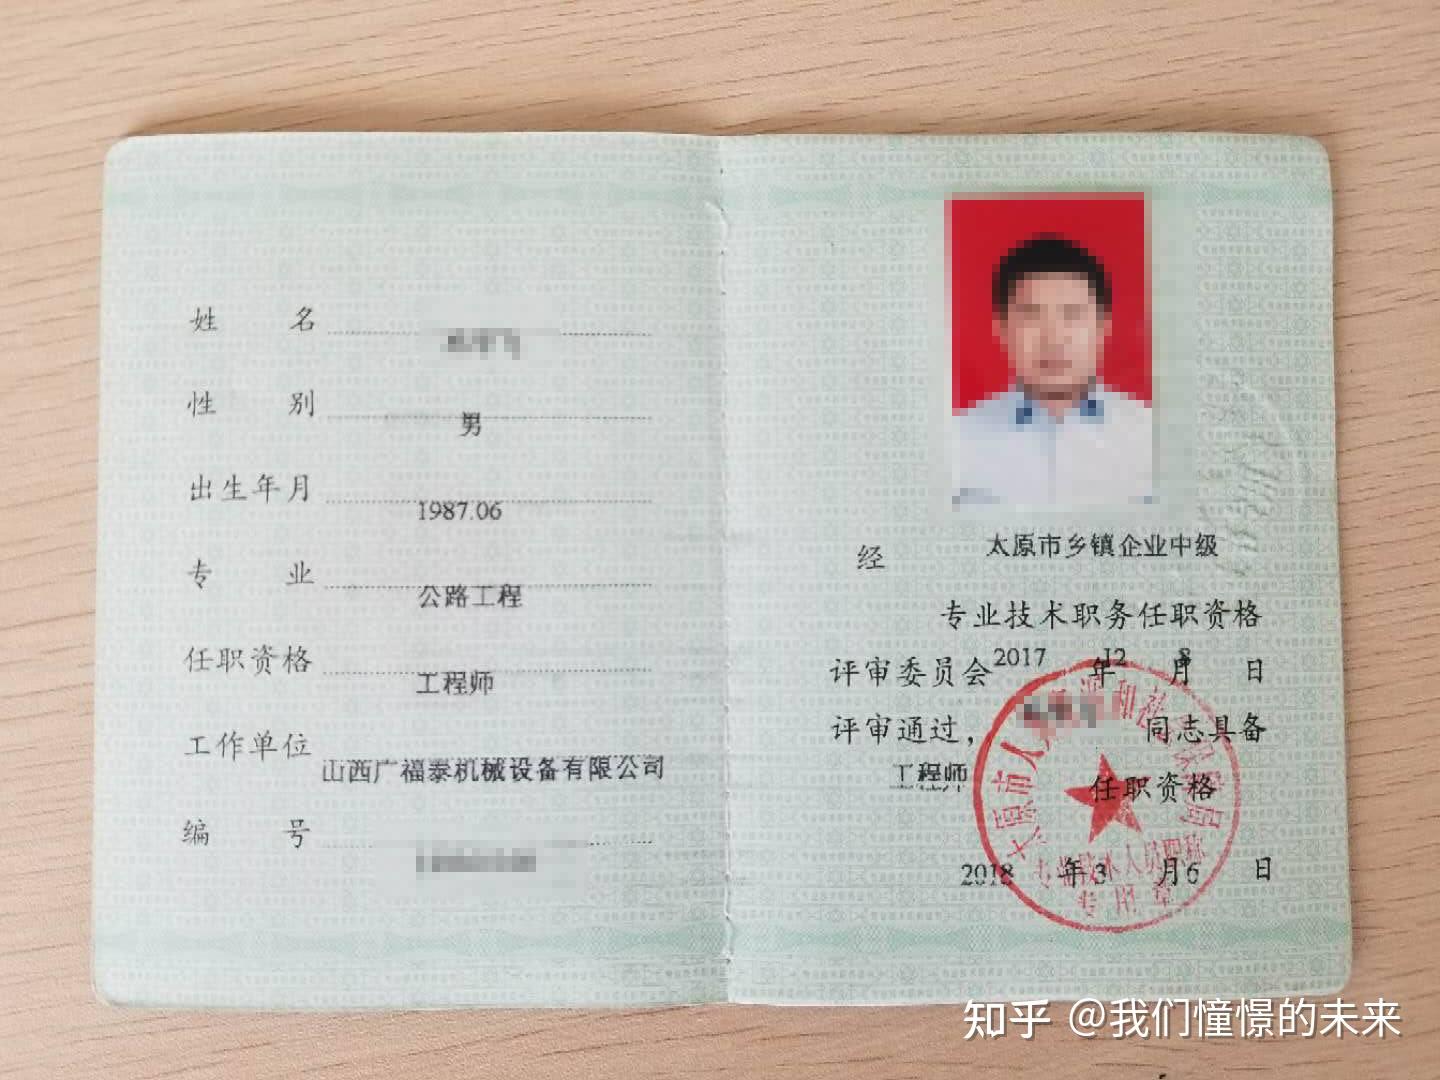 姓名
性别 男
出生年月 1987.06
专业 公路工程
任职资格 工程师
工作单位 山西广福泰机械设备有限公司
编号
经 太原市乡镇企业中级
专业技术职务任职资格
评审委员会 2017 年 12 月 8 日
评审通过， 同志具备
工程师 任职资格
2018 年 3 月 6 日
太原市人力资源和社会保障局
专业技术人员职称
专用章
知乎 @我们憧憬的未来